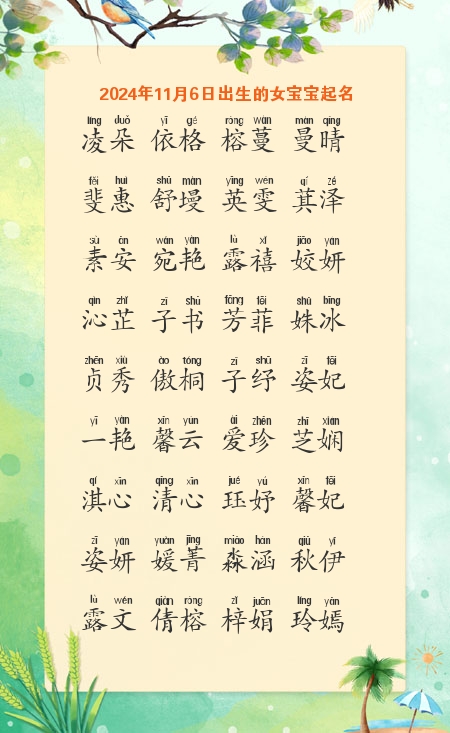 2024年11月6日出生的女宝宝起名
líng duǒ yī gé róng wàn màn qíng
凌朵 依格 榕蔓 曼晴
fěi huì shū màn yīng wén qí zé
斐惠 舒墁 英雯 萁泽
sù ān wǎn yàn lù xǐ jiāo yán
素安 宛艳 露禧 姣妍
qìn zhǐ zi shū fāng fēi shū bīng
沁芷 子书 芳菲 姝冰
zhēn xiù ào tóng zǐ shū zī fēi
贞秀 傲桐 子纾 姿妃
yī yàn xīn yún ài zhēn zhī xián
一艳 馨云 爱珍 芝娴
qí xīn qīng xīn jué yú xīn fēi
淇心 清心 珏妤 馨妃
zī yán yuàn jīng miǎo hán qiū yī
姿妍 媛菁 淼涵 秋伊
lù wén qiàn róng zǐ juān líng yān
露文 倩榕 梓娟 玲嫣